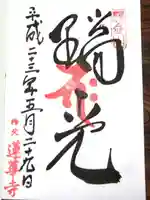 瑞光
平成二三年五月二十九日
蓮華寺